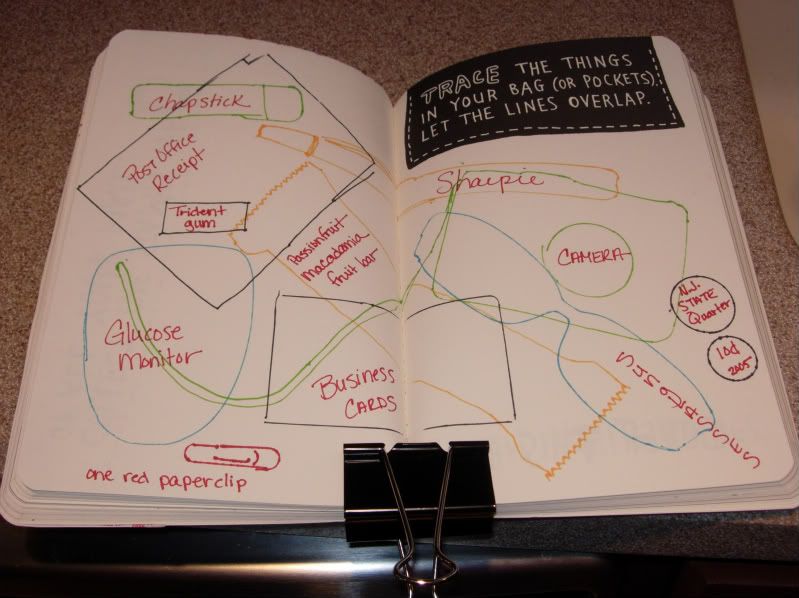 Chapstick
Post Office
Receipt
Trident
gum
Passionfruit
macadamia
fruit bar
Glucose
Monitor
Business
Cards
one red paperclip
TRACE THE THINGS
IN YOUR BAG (OR POCKETS).
LET THE LINES OVERLAP.
Sharpie
CAMERA
N.J.
STATE
Quarter
10¢
2005
SUNGLASSES